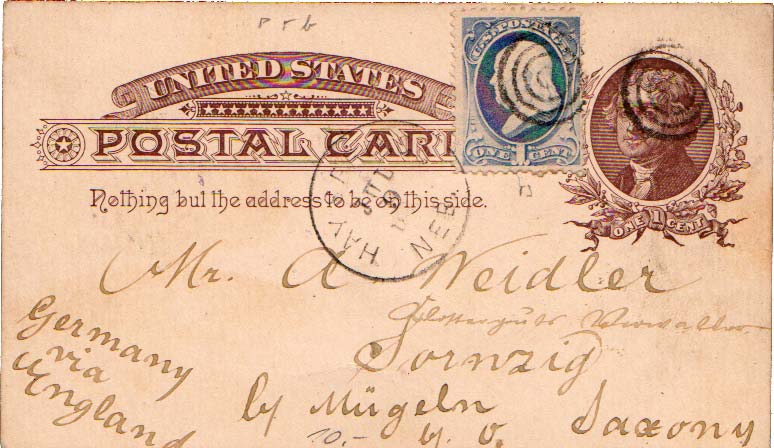 UNITED STATES
POSTAL CARD
Nothing but the address to be on this side.
U.S. POSTAGE
ONE CENT
ONE 1 CENT
NEB
Mr. A Weidler
Klosterguts Verwalter
Sornzig
by Mügeln
Saxony
Germany
via
England
10.-